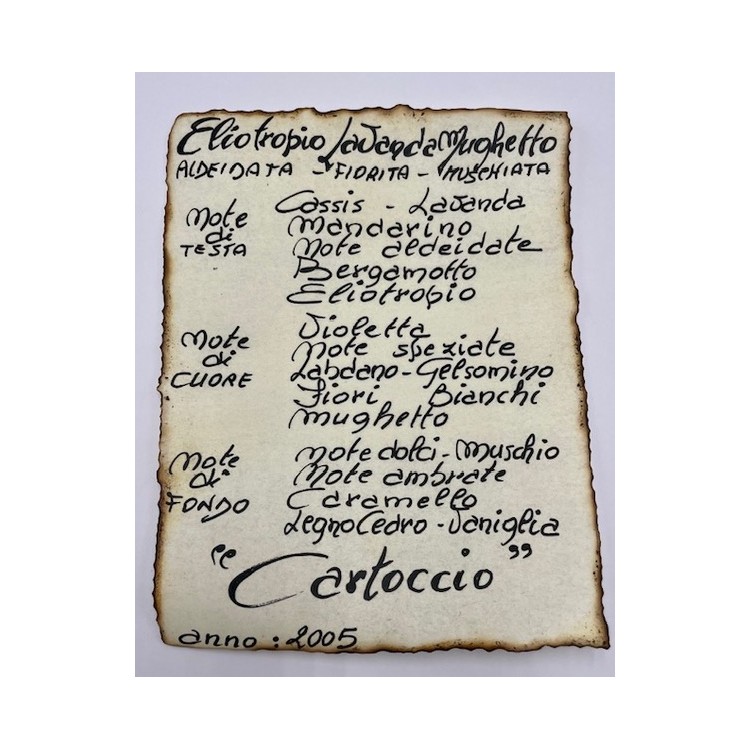 Eliotropio Lavanda Mughetto
ALDEIDATA - FIORITA - MUSCHIATA
Note di TESTA
Cassis - Lavanda
Mandarino
Note aldeidate
Bergamotto
Eliotropio
Note di CUORE
Violetta
Note speziate
Labdano - Gelsomino
Fiori Bianchi
Mughetto
Note di FONDO
Note dolci - Muschio
Note ambrate
Caramello
Legno Cedro - Vaniglia
"Cartoccio"
anno : 2005